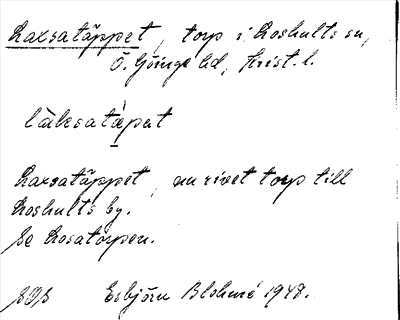 Laxsatäppet, torp i Loshults sn,
Ö. Göinge hd, Krist. l.
làksatæ̀pət
Laxsatäppet, nu rivet torp till
Loshults by.
Se Losatorpen.
Esbjörn Blohmé 1948.